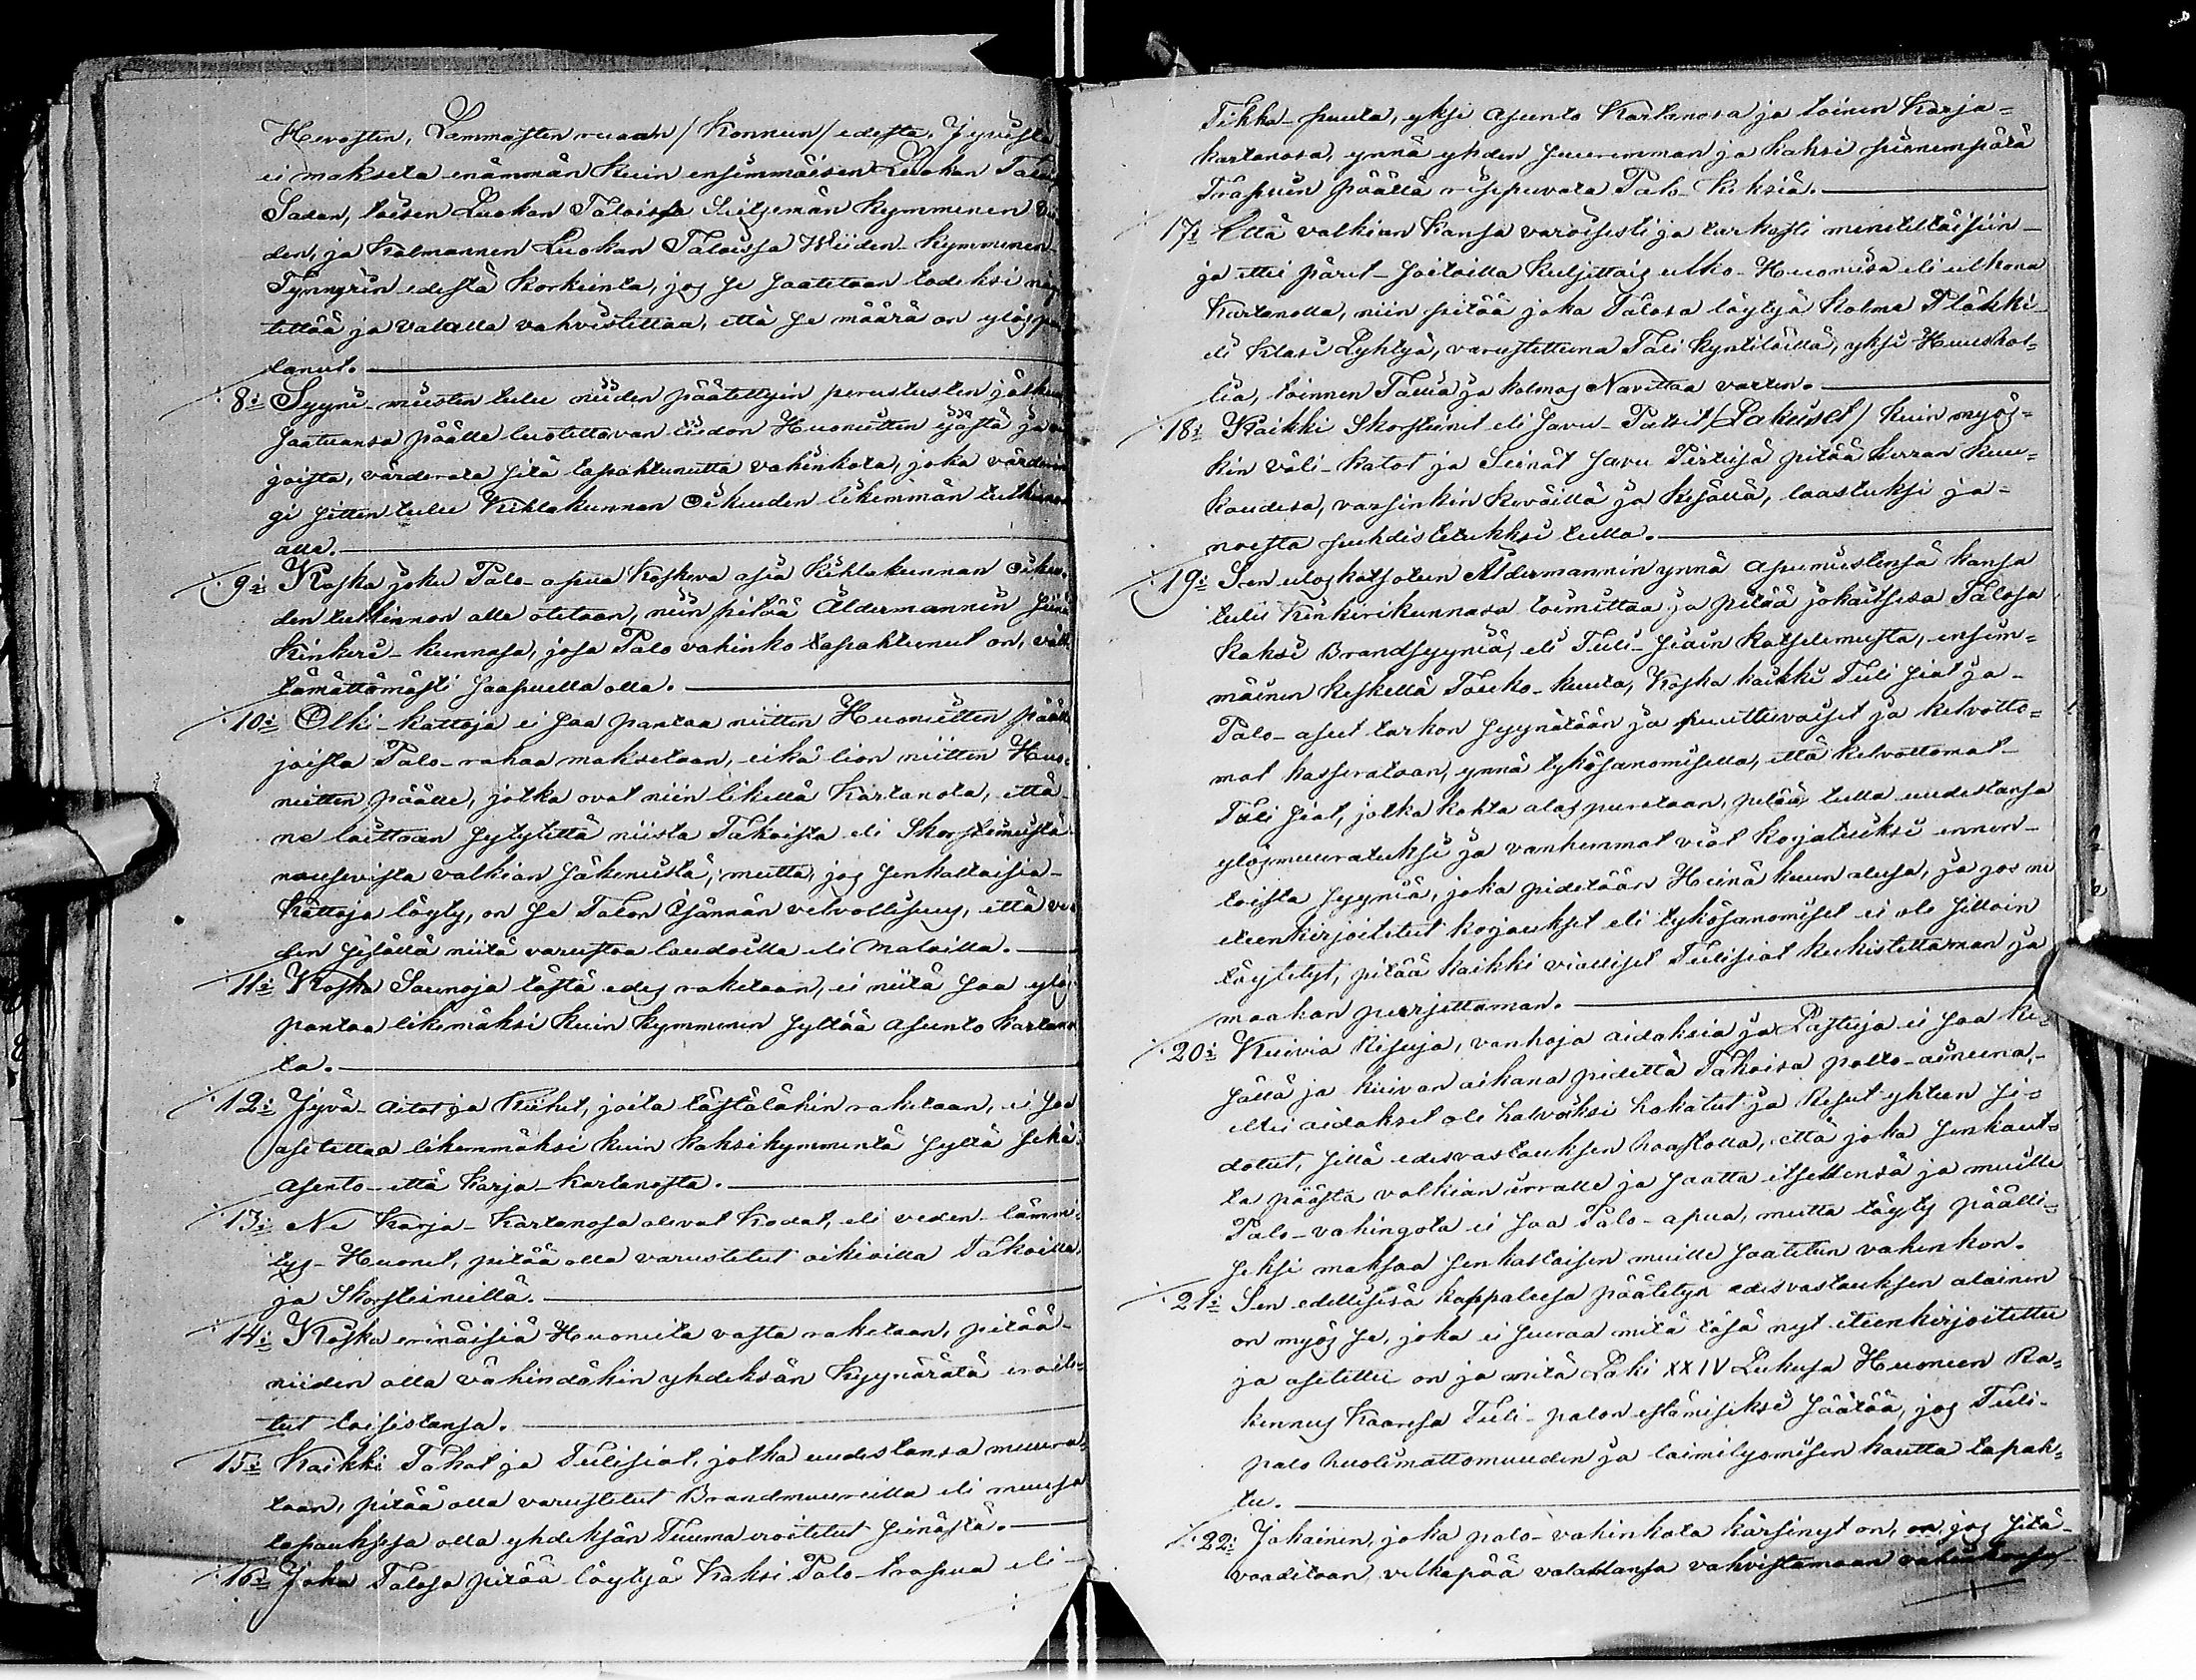 Hevosten, Lammasten ruaan / Konnun / edestä. Jyvistä
ei makseta enämmän kuin ensimmäisen Luokan
Sadan, toisen Luokan Taloissa Seitzemän kymmenen
den, ja Kolmannen Luokan Taloissa Wiiden-kymmenen
Tynnyrin edestä korkeinta, jos se saatetaan todeksi
tettää ja valalla vahvistettaa, että se määrä on
lanut.
8:i Syyni-miesten tulee niiden päätettyin perustusten
saatuansa päälle luotettavan tiedon Huonetten ijästä ja
joista, värderata sitä tapahtunutta vahinkota, joka
gi sitten tulee Kihlakunnan Oikeuden likemmän
alle.
9:i Koska joku Palo-apua koskeva asia Kihlakunnan Oikeu-
den tutkinnon alle otetaan, niin pitää Åldermannin siinä
Kinkeri-kunnasa, josa Palo vahinko tapahtunut on,
tämättömästi saapuella olla.
10:i Olki-kattoja ei saa pantaa niitten Huonetten päälle
joista Palo-rahaa maksetaan, eikä lion niitten Huo-
neitten päälle, jotka ovat niin likellä Kartanota, että
ne taittaan sytytettä niista Takoista eli Skorsteineistä
nousevista valkian säkenistä; mutta, jos senkaltaisia
Kattoja löyty, on se Talon Isännän velvollisuus, että
den sisällä niitä varustaa laudoilla eli Maloilla.
11:i Koska Saunoja tästä edes raketaan, ei niitä saa ylös
pantaa likemäksi kuin kymmenen syltää asunto Kartano
ta.
12:i Jyvä-Aitat ja Riihet, joita tästäläkin raketaan, ei saa
asetettaa likemmäksi kuin kaksikymmentä syltä sekä
asunto- että karja-kartanosta.
13:i Ne Karja-Kartanosa olevat Kodat, eli veden-lämmi-
tys-Huonet, pitää olla varustetut oikioilla Takoilla
ja Skorsteineillä.
14:i Koska erinäisiä Huoneita vasta raketaan, pitää
niiden olla vähindäkin yhdeksän kyynärätä eroite-
tut toisistansa.
15:i Kaikki Takat ja Tulisiat, jotka uudestansa muura-
taan, pitää olla varustetut Brandmuureilla eli muusa
tapauksesa olla yhdeksän Tuuma eroitetut seinästä.
16:i Joka Talosa pitää löytyä Kaksi Palo-trapua eli
Tikka-puuta, yksi asunto Kartanosa ja toinen Karja-
kartanosa, ynnä yhden suuremman ja kaksi pienempätä
Trapuin päällä riippuvata Palo-Keksiä.
17:i Että valkian kansa varoisesti ja tarkasti meneteltäisiin
ja ettei päret-soitoilla kuljettais ulko-Huoneisa eli ulkona
Kartanolla, niin pitää joka Talosa löytyä Kolme Pläkki-
eli Klasi Lyhtyä, varustettuna Tali kyntilöillä, yksi Huushol-
lia, toinen Tallia ja kolmas Navettaa varten.
18:i Kaikki Skorsteinit eli savu-Patsit / Lakeiset / kuin myös-
kin väli-katot ja Seinät savu Pirteisä pitää kerran kuu-
kaudesa, varsinkin keväillä ja kesällä, laastuksi ja
noesta puhdistetukksi tulla.
19:i Sen uloskatsotun Åldermannin ynnä apumiestensä kansa
tulee Kinkerikunnasa toimittaa ja pitää jokaitsesa Talosa
kaksi Brandsyyniä, eli Tuli-siain katselemusta, ensim-
mäinen keskellä Touko-kuuta, Koska kaikki Tuli siat ja
Palo-aseet tarkon syynätään ja puuttuvaiset ja kelvotto-
mat kasserataan, ynnä tykösanomisella, että kelvottomat
Tuli siat, jotka kohta alas puretaan, pitää tulla uudestansa
ylösmuuratuksi ja vanhemmat viat korjatuksi ennen
toista syyniä, joka pidetään Heinä kuun alusa, ja jos ne
eteenkirjoitetut korjaukset eli tykösanomiset ei ole silloin
täytetyt, pitää kaikki vialliset Tulisiat kukistettaman ja
maahan purjettaman.
20:i Kuivia Risuja, vanhoja aidaksia ja Lastuja ei saa ke-
sällä ja kuivan aikana pidettä Takoisa poltto-aineena,
ellei aidakset ole halvoiksi hakatut ja Risut yhteen si-
dotut, sillä edesvastauksen haastolla, että joka senkaut-
ta päästä valkian irralle ja saatta itsellensä ja muille
Palo-vahingota ei saa Palo-apua, mutta täyty päälli-
seksi maksaa senkaltaisen muille saatetun vahinkon.
21:i Sen edellisisä kappaleesa päätetyn edesvastauksen alainen
on myös se, joka ei seuraa mitä täsä nyt eteenkirjoitettu
ja asetettu on ja mitä Laki XXIV Lukusa Huoneen Ra-
kennus Kaaresa Tuli-palon estämiseksi säätää, jos Tuli-
palo huolimattomuuden ja laimilyömisen kautta tapah-
tu.
22:i Jokainen, joka palo-vahinkota kärsinyt on, on, jos sitä
vaaditaan velkapää valallansa vahvistamaan vahinkonsa